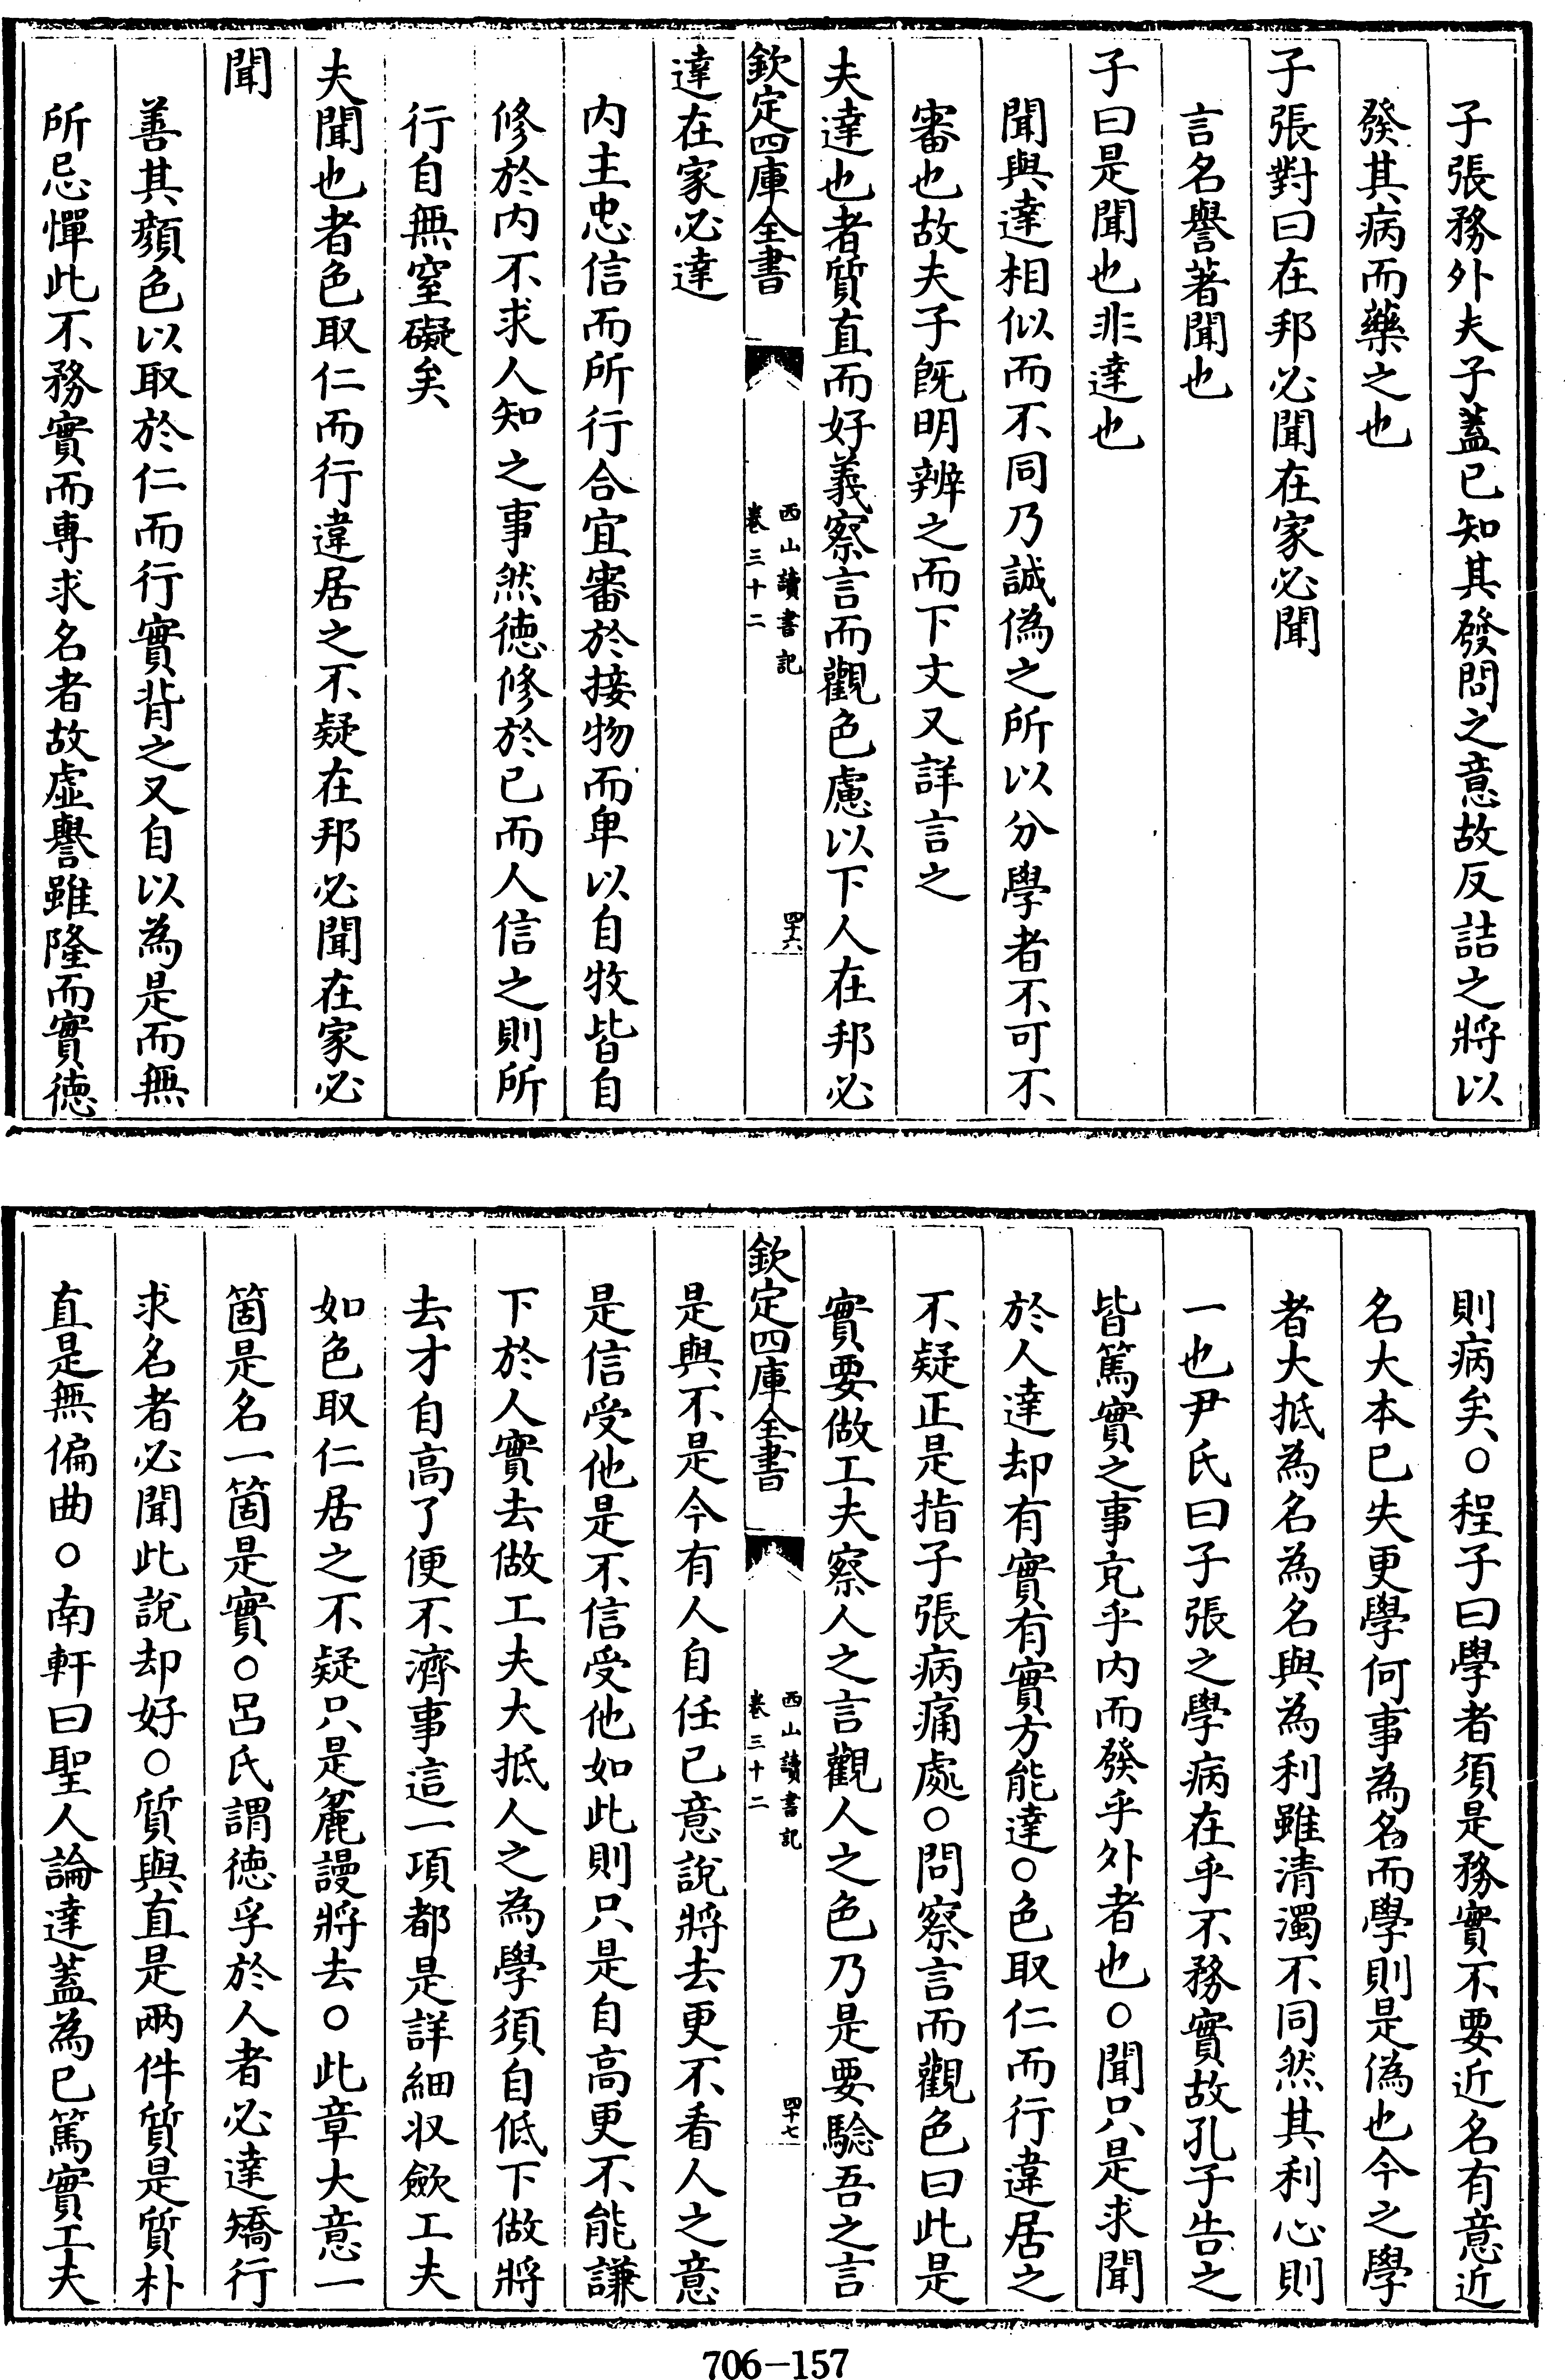 子張務外夫子蓋已知其發問之意故反詰之將以
發其病而藥之也
子張對曰在邦必聞在家必聞
言名譽著聞也
子曰是聞也非達也
聞與達相似而不同乃誠偽之所以分學者不可不
審也故夫子既明辨之而下文又詳言之
夫達也者質直而好義察言而觀色慮以下人在邦必
欽定四庫全書
西山讀書記
卷三十二
四十六
達在家必達
内主忠信而所行合宜審於接物而卑以自牧皆自
修於内不求人知之事然德修於已而人信之則所
行自無窒礙矣
夫聞也者色取仁而行違居之不疑在邦必聞在家必
聞
善其顔色以取於仁而行實背之又自以為是而無
所忌憚此不務實而專求名者故虛譽雖隆而實德
則病矣○程子曰學者須是務實不要近名有意近
名大本已失更學何事為名而學則是偽也今之學
者大抵為名為名與為利雖清濁不同然其利心則
一也尹氏曰子張之學病在乎不務實故孔子告之
皆篤實之事充乎内而發乎外者也○聞只是求聞
於人達却有實有實方能達○色取仁而行違居之
不疑正是指子張病痛處○問察言而觀色曰此是
實要做工夫察人之言觀人之色乃是要驗吾之言
欽定四庫全書
西山讀書記
卷三十二
四十七
是與不是今有人自任已意說將去更不看人之意
是信受他是不信受他如此則只是自高更不能謙
下於人實去做工夫大抵人之為學須自低下做將
去才自高了便不濟事這一項都是詳細収歛工夫
如色取仁居之不疑只是麄謾將去○此章大意一
箇是名一箇是實○呂氏謂德孚於人者必達矯行
求名者必聞此說却好○質與直是兩件質是質朴
直是無偏曲○南軒曰聖人論達蓋為已篤實工夫
706-157